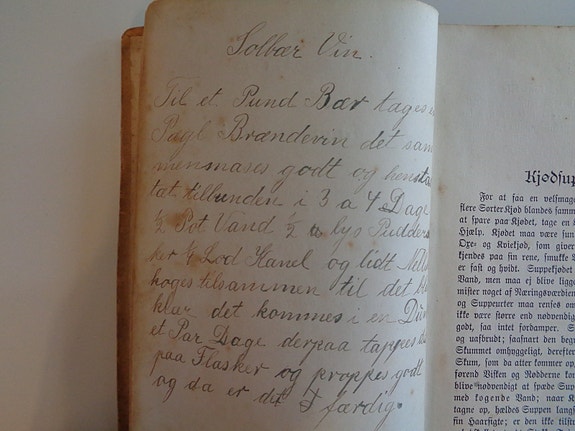 Solbær Vin.
Til et Pund Bær tages
Pægl Brændevin det sam
menmases godt og henstaa
tæt tilbunden i 3 a 4 Dage
½ Pot Vand ½ lys Pudders
ker ¼ Lod Kanel og lidt Nelli
koges tilsammen til det bli
klar det kommes i en Dun
et Par Dage derpaa tappes de
paa Flasker og proppes godt
og da er det færdig.
Kjødsup
For at faa en velsmage
flere Sorter Kjød blandes samm
at spare paa Kjødet, tage en
Hjælp. Kjødet maa være sun
Oxe- og Kviekjød, som giver
kjendes paa sin rene, smukke
er fast og hvidt. Suppekjødet
Vand, men maa ej blive ligge
mister noget af Næringsværdien
og Suppeurter maa renses om
ikke være større end nødvendig
godt, saa intet fordamper. S
og uafbrudt; saasnart den begyn
Skummet omhyggeligt, derefter
Skum, som da atter kommer op,
førend Visken og Rødderne kom
blive nødvendigt at spæde Supp
med kogende Vand; naar K
tagne op, hældes Suppen langs
fin Haarsigte; er den ikke tilstr